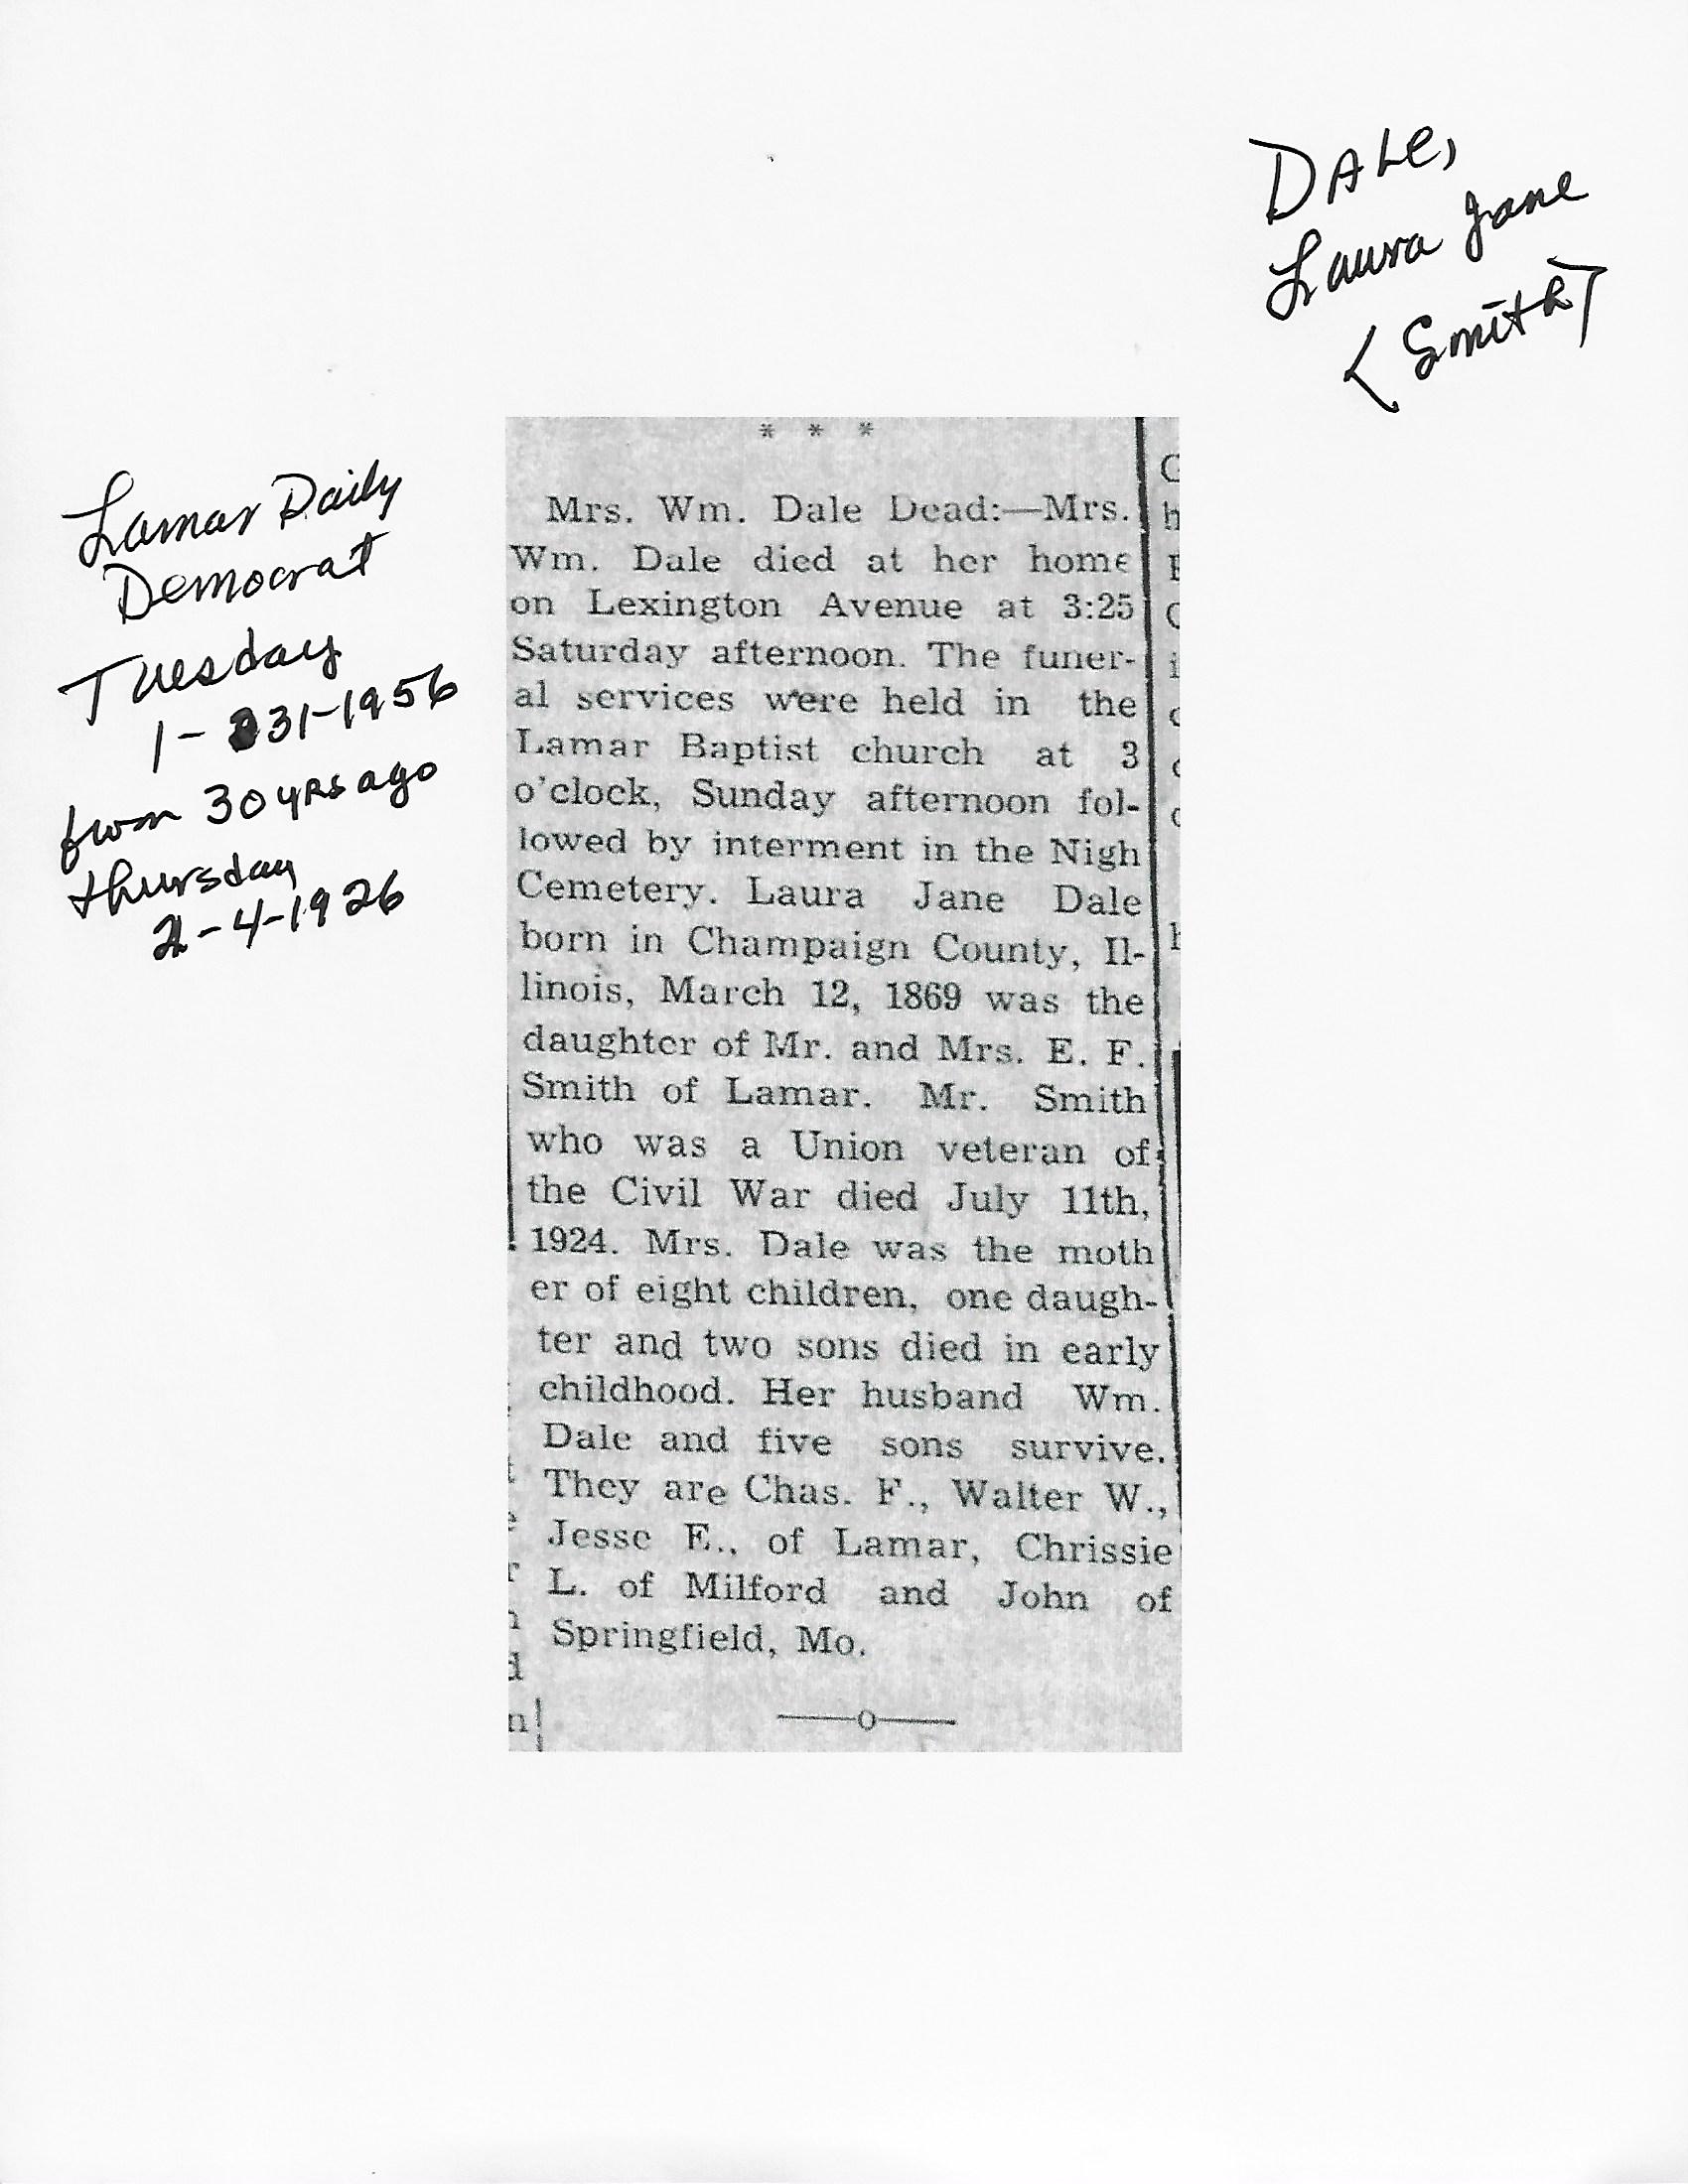 DALE,
Laura Jane
(Smith)
Lamar Daily
Democrat
Tuesday
1-31-1956
from 30 yrs ago
thursday
2-4-1926
* * *
Mrs. Wm. Dale Dead:—Mrs.
Wm. Dale died at her home
on Lexington Avenue at 3:25
Saturday afternoon. The funer-
al services were held in the
Lamar Baptist church at 3
o'clock, Sunday afternoon fol-
lowed by interment in the Nigh
Cemetery. Laura Jane Dale
born in Champaign County, Il-
linois, March 12, 1869 was the
daughter of Mr. and Mrs. E. F.
Smith of Lamar. Mr. Smith
who was a Union veteran of
the Civil War died July 11th,
1924. Mrs. Dale was the moth
er of eight children, one daugh-
ter and two sons died in early
childhood. Her husband Wm.
Dale and five sons survive.
They are Chas. F., Walter W.,
Jesse E., of Lamar, Chrissie
L. of Milford and John of
Springfield, Mo.
——o——